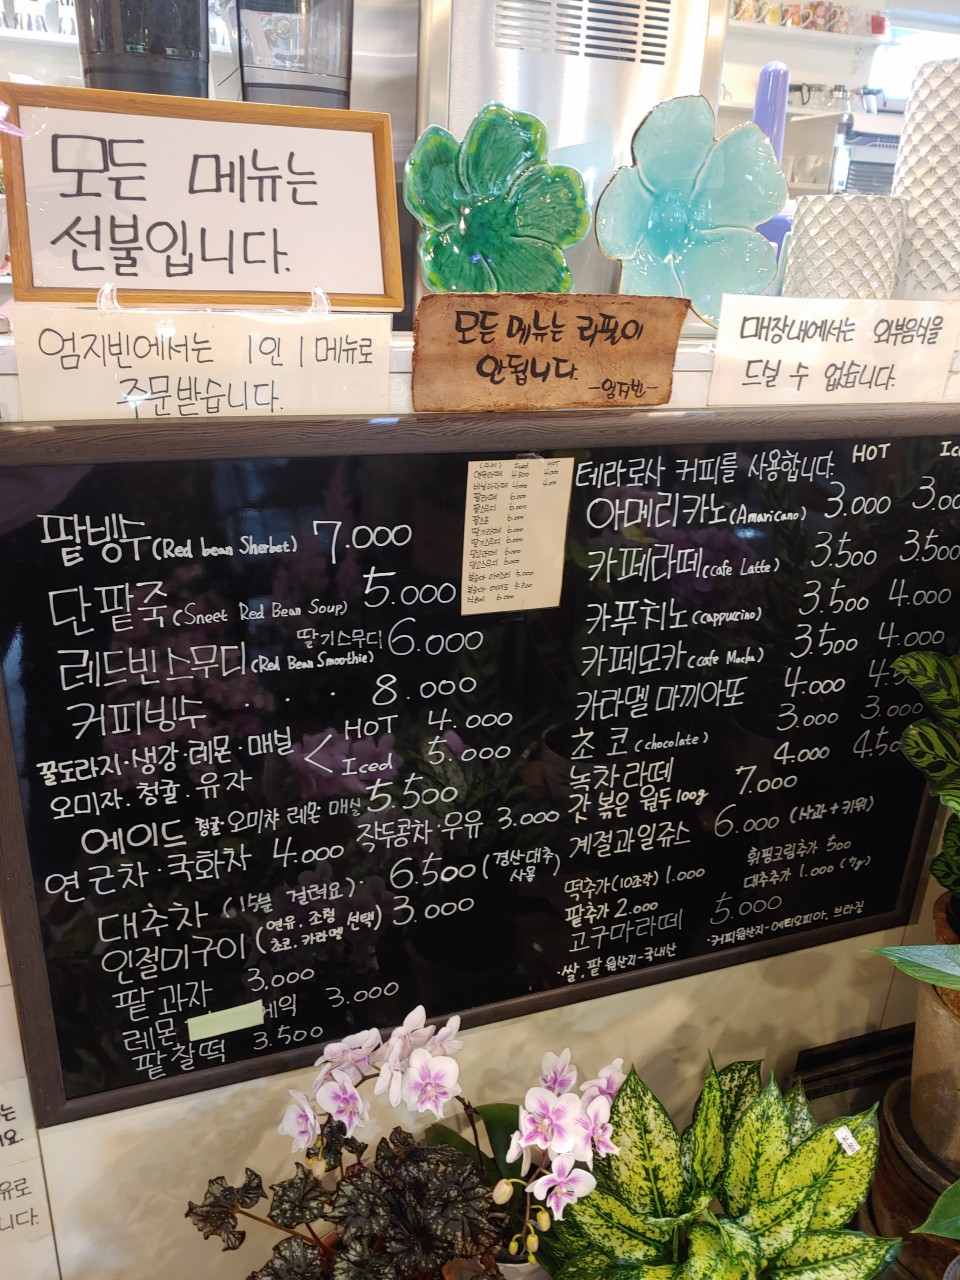 모든 메뉴는
선불입니다.
엄지빈에서는 1인 1메뉴로
주문받습니다.
모든 메뉴는 리필이
안됩니다.
-엄지빈-
매장내에서는 외부음식을
드실 수 없습니다.
팥빙수(Red bean Sherbet) 7.000
단팥죽(Sneet Red Bean Soup) 5.000
딸기스무디
레드빈스무디(Red Bean Smoothie) 6.000
커피빙수 . . . 8.000
꿀도라지·생강·레몬·매실 < HOT 4.000
오미자.청귤.유자 Iced 5.000
에이드 청귤 오미자 레몬 매실 5.500
연근차·국화차 4.000 작두콩차·우유 3.000
대추차 (15분 걸려요)· 6.500 (경산대추 사용)
인절미구이 (연유, 조청 초코, 카라멜 선택) 3.000
팥과자 3.000
레몬 케익 3.000
팥찰떡 3.500
테라로사 커피를 사용합니다. HOT
아메리카노(Amaricano) 3.000
카페라떼(ccafe Latte) 3.500 3.500
카푸치노(cappuccino) 3.500 4.000
카페모카(ccafe Mocha) 3.500 4.000
카라멜 마끼아또 4.000
초코(chocolate) 3.000 3.000
녹차라떼 4.000
갓 볶은 원두 100g 7.000
계절과일쥬스 6.000 (사과+키위)
떡추가(10조각) 1.000 휘핑크림추가 500
팥추가 2.000 대추추가 1.000 (7g)
고구마라떼 5.000
·쌀, 팥 원산지-국내산 ·커피원산지-에티오피아, 브라질